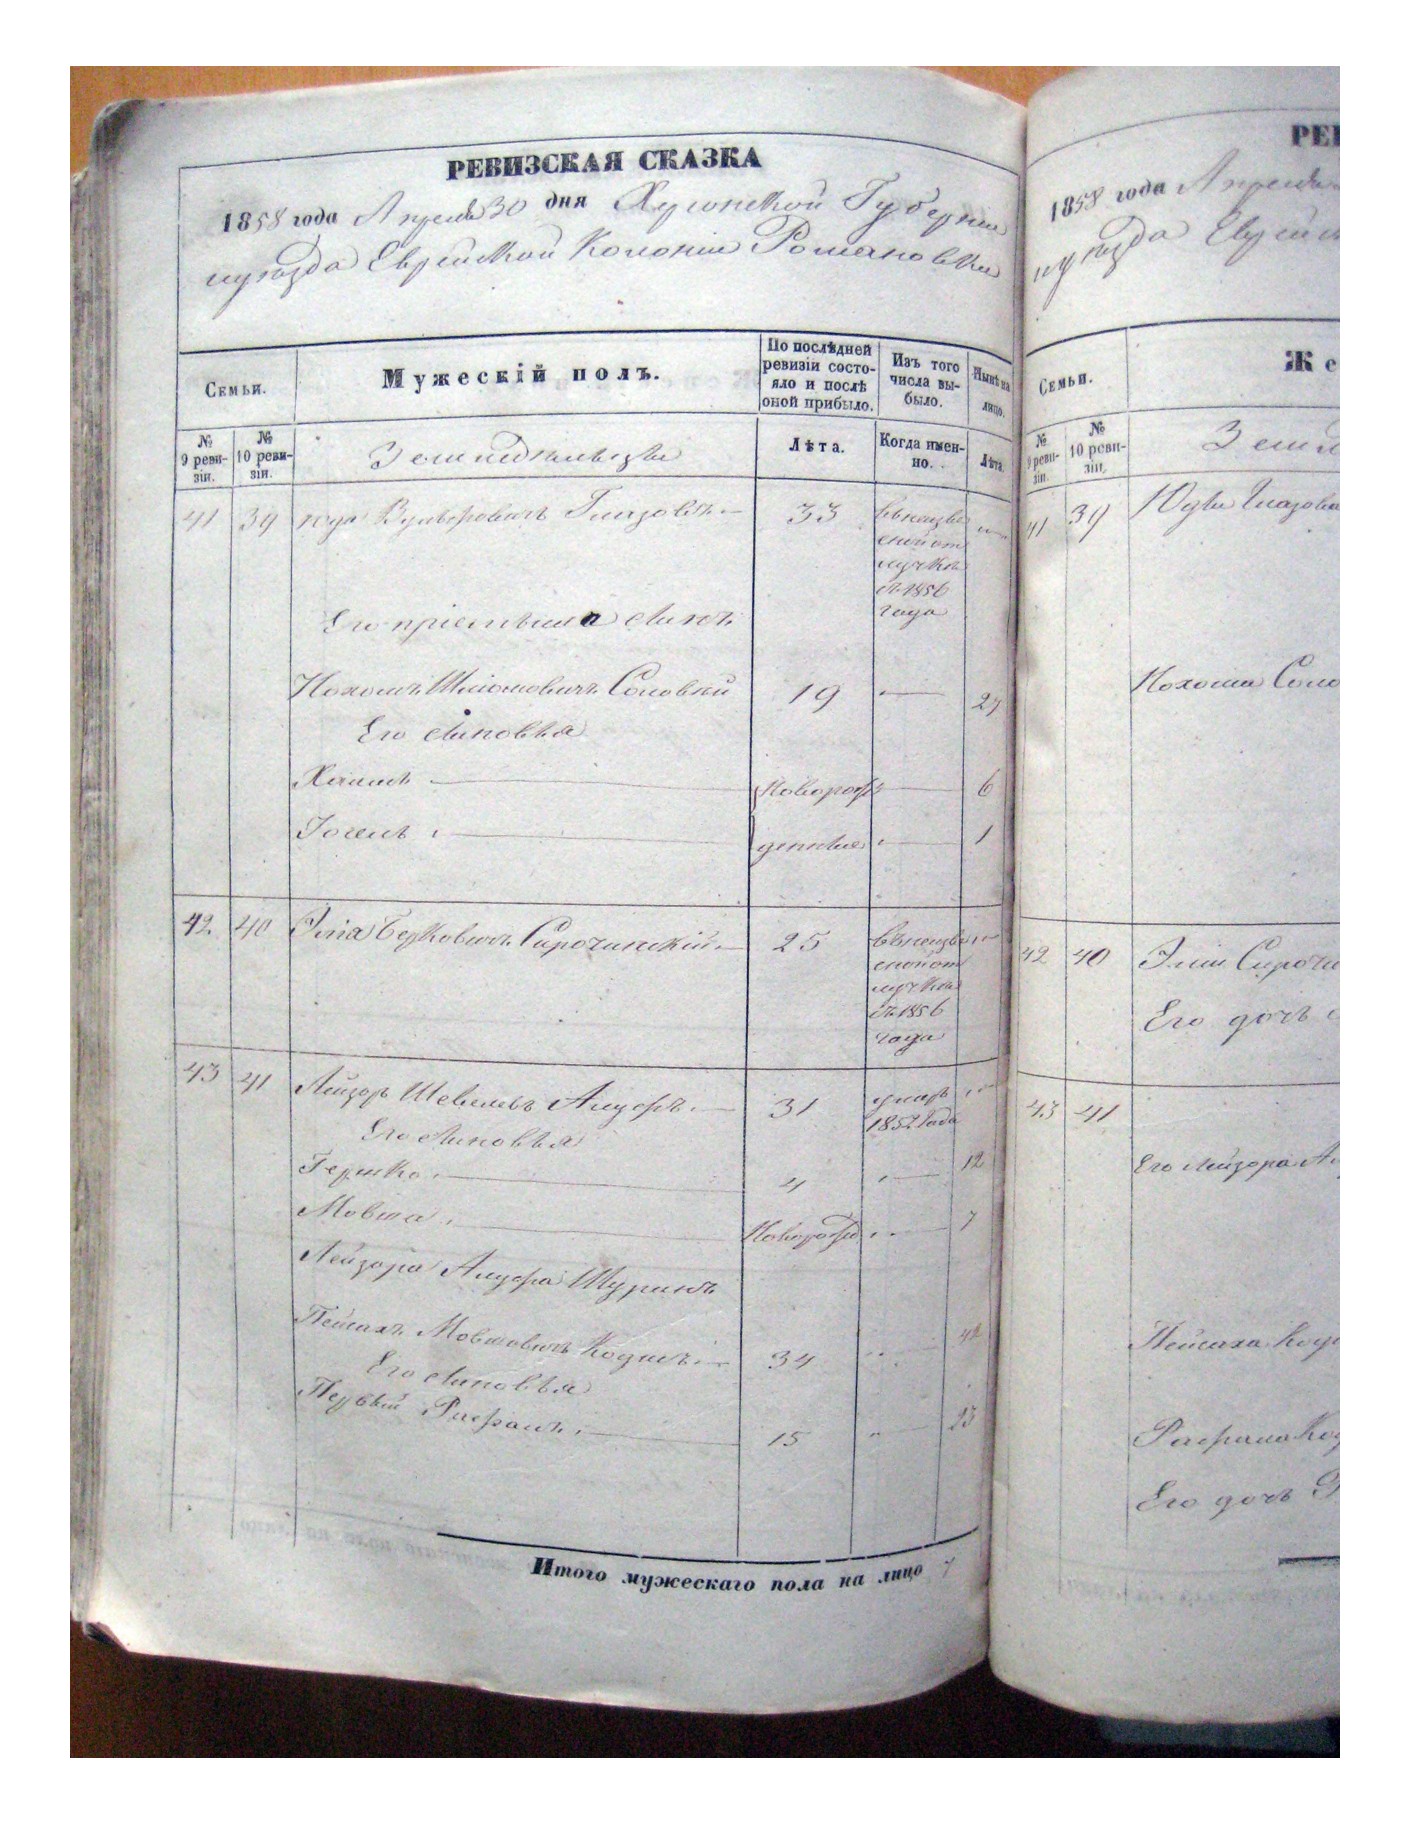 РЕВИЗСКАЯ СКАЗКА
1858 года Апреля 30 дня Херсонской Губернии
и уезда Еврейской Колонии Романовки
Семьи.
Мужескій полъ.
По послѣдней ревизіи состо-
яло и послѣ
оной прибыло.
Изъ того
числа вы-
было.
Нынѣ на
лицо.
№
9 реви-
зіи.
№
10 реви-
зіи.
Земледельцы
Лѣта.
Когда имен-
но.
Лѣта.
41 39 Юда Вульфовичъ Глазовъ 33
въ неизве
стной от
лучке
съ 1856
года
Его пріемыша сынъ
Нохомъ Шліомовичъ Соловей 19 27
Его сыновья
Хаимъ новорож 6
Іосель денныя 1
42 40 Элiа Берковичъ Сирочинскій 25
въ неизве
стной от
лучке
съ 1856
года
43 41 Лейзоръ Шевелевъ Алуфъ 31 умеръ
1852 года
Его сыновья
Гершко 4 12
Мовша Новорож 7
Лейзора Алуфа Шуринъ
Пейсахъ Мовшовичъ 34 42
Его сыновья
Первый Рафаилъ 15 23
Итого мужескаго пола на лицо 7
РЕ
1858 года Апреля
и уезда Еврейс
Семьи.
Же
№
9 реви-
зіи.
№
10 реви-
зіи.
Землд
41 39 Юды Глазова
Нохома Соло
42 40 Эліи Сирочи
Его дочь
43 41
Его Лейзора А
Пейсаха
Рафаила
Его дочь